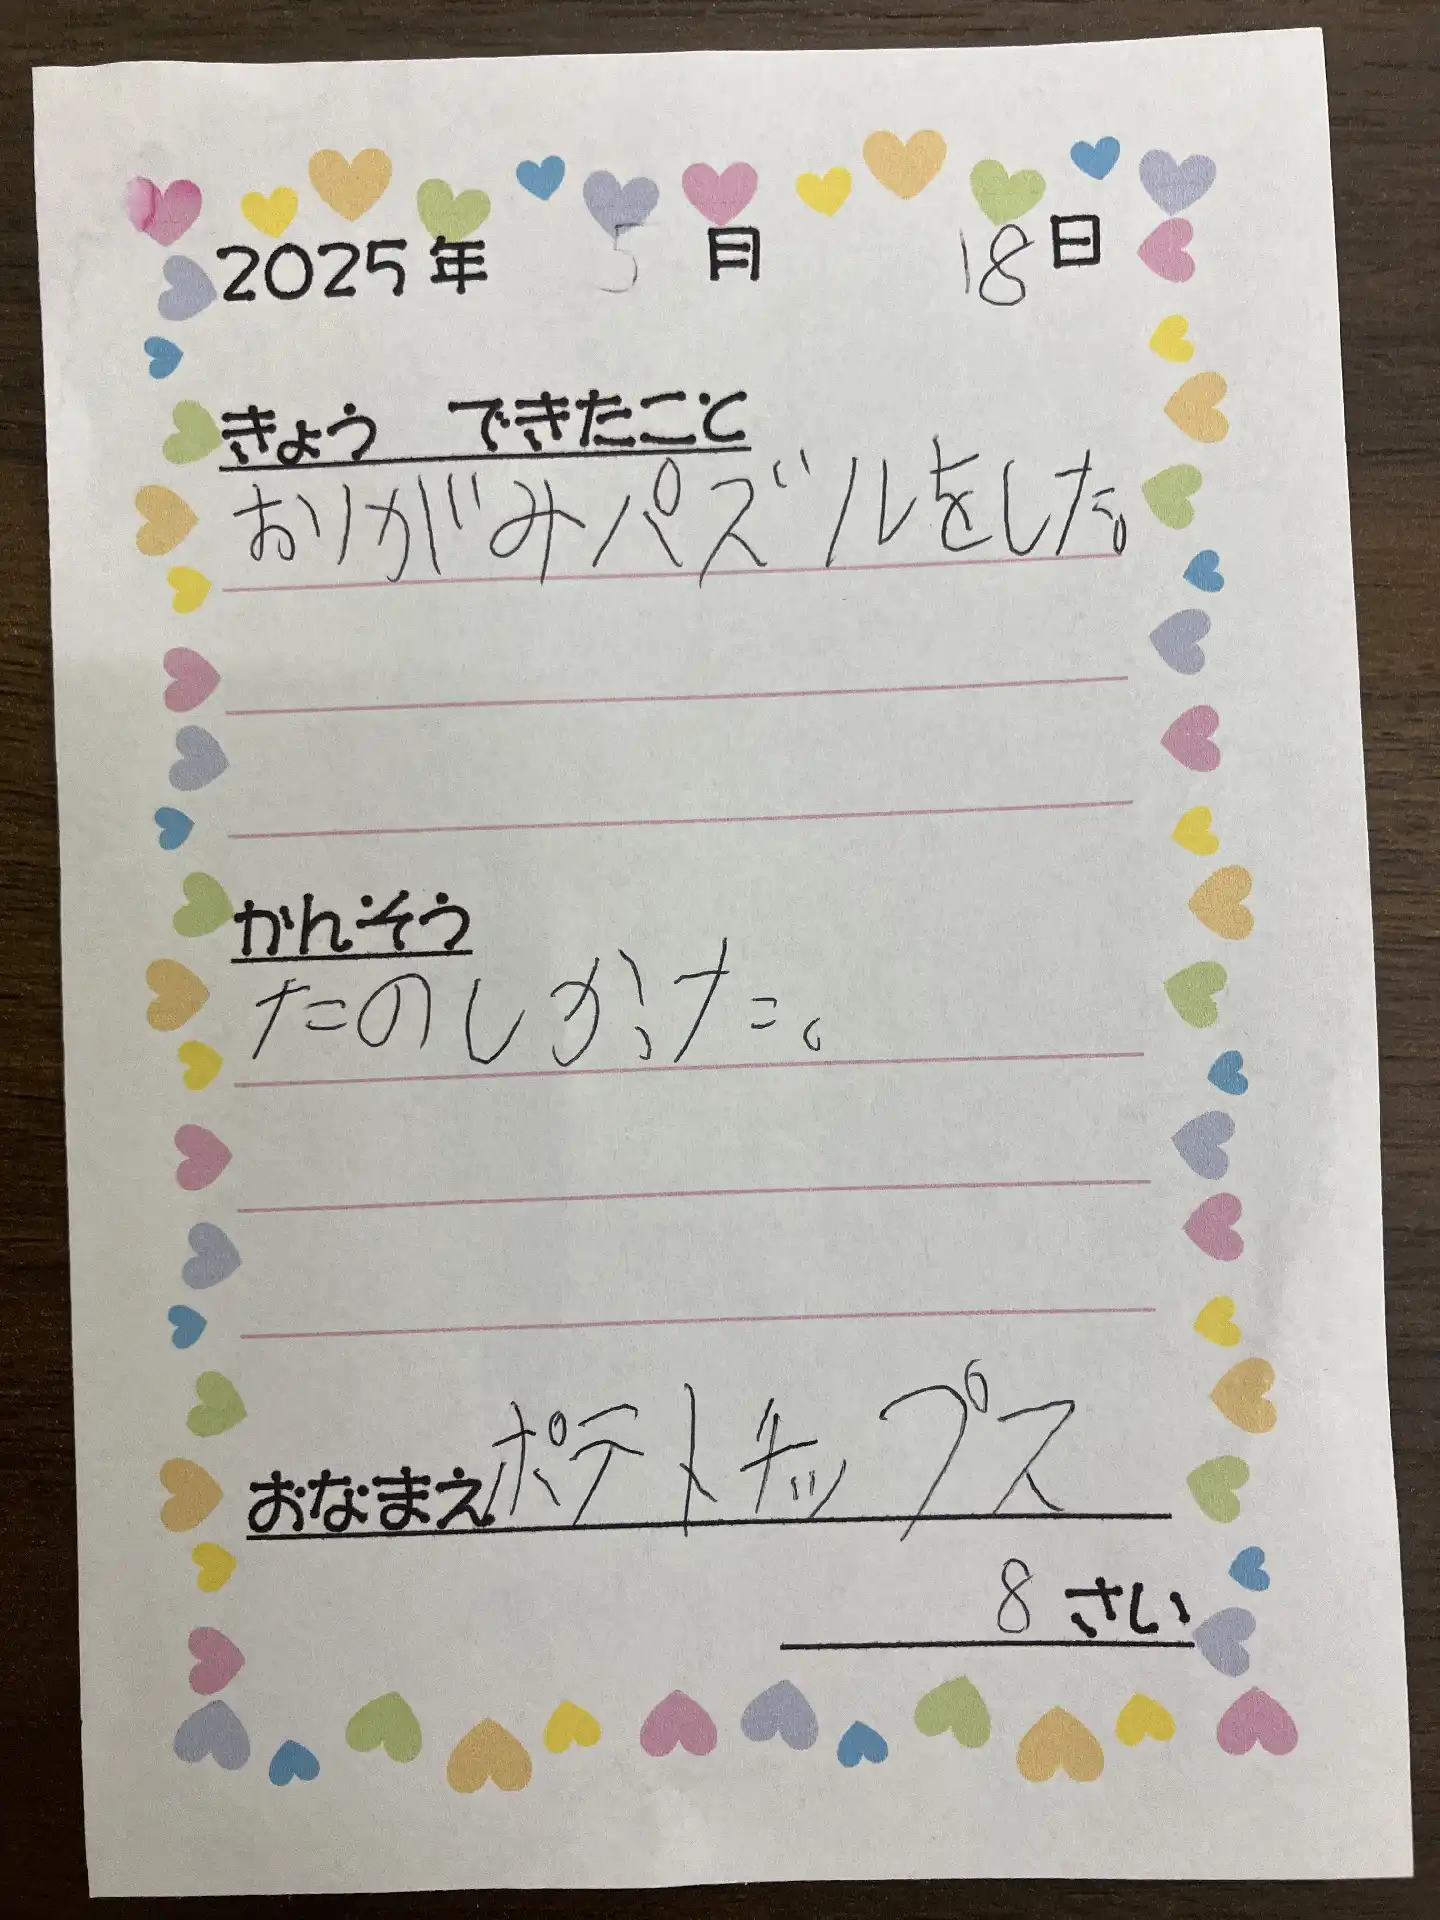 2025年 5月 18日
きょう できたこと
おりがみパズルをした。
かんそう
たのしかった。
おなまえ ポテトチップス
8さい